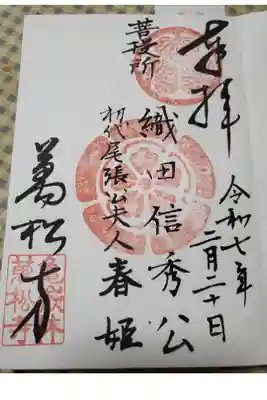 奉拝
令和七年
二月二十日
織田信秀公
菩提所
初代尾張藩主夫人春姫
萬松寺
亀岳林
萬松寺